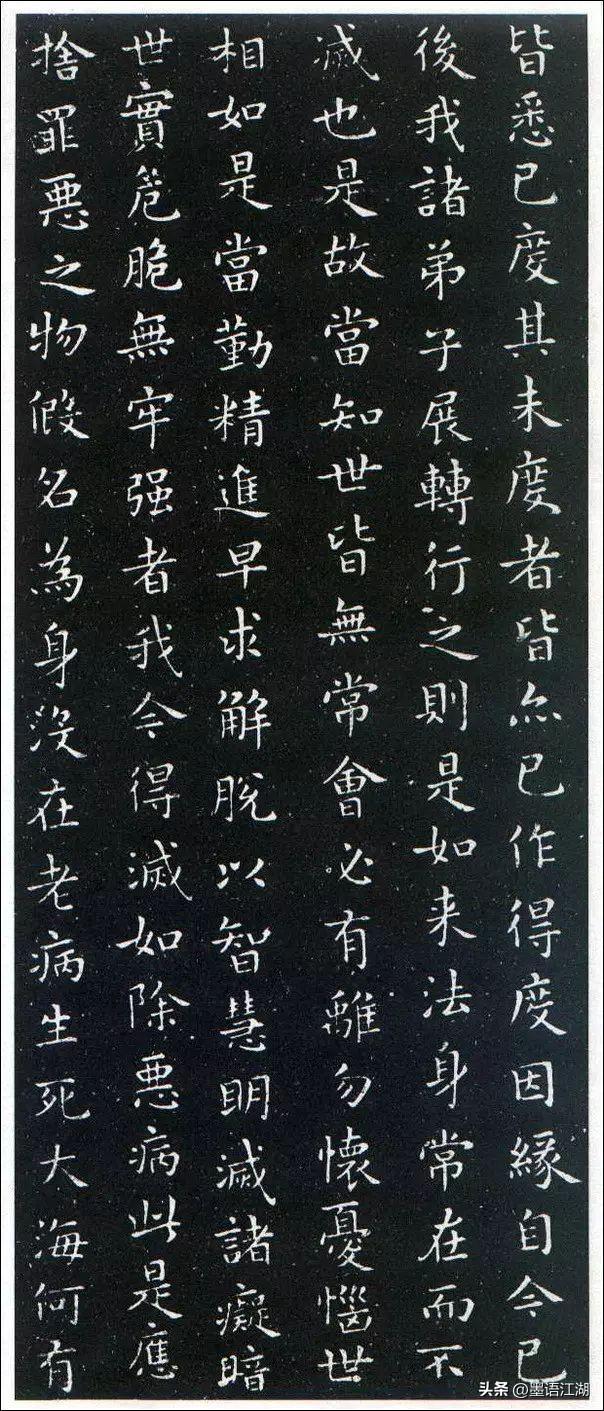 皆悉已度其未度者皆亦已作得度因緣自今已
後我諸弟子展轉行之則是如来法身常在而不
滅也是故當知世皆無常會必有離勿懷憂惱世
相如是當勤精進早求解脫以智慧明滅諸癡暗
世實危脆無牢强者我今得滅如除惡病此是應
捨罪惡之物假名為身没在老病生死大海何有
头条 @墨语江湖